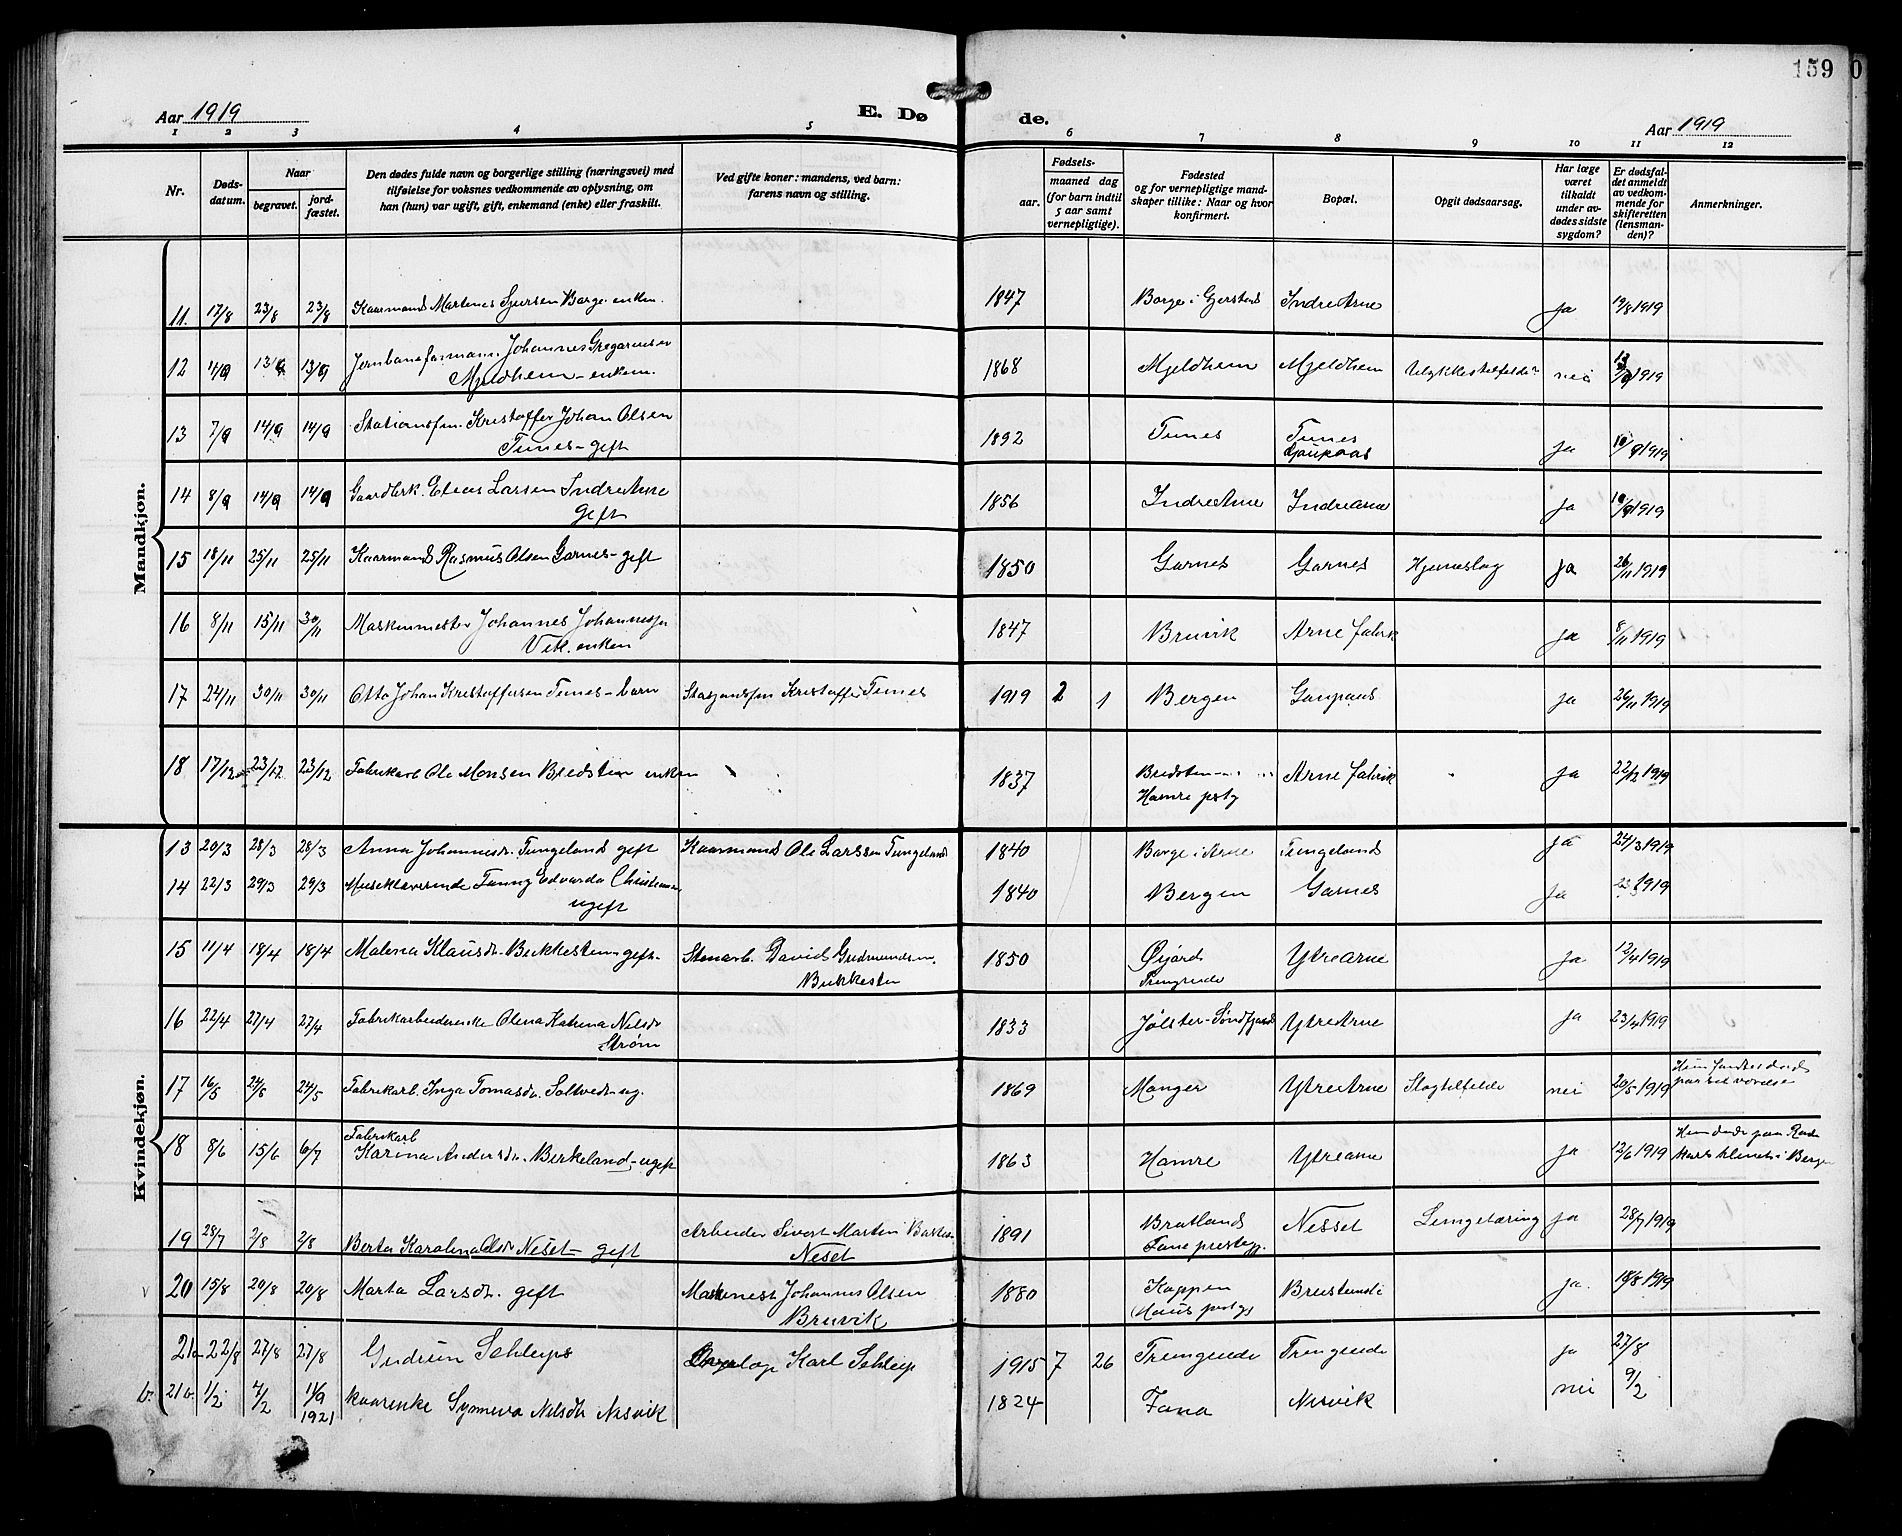 159 0
Aar 1919 E. Dø de. Aar 1919
1 2 3 4 5 6 7 8 9 10 11 12
Nr. Døds-datum. Naar begravet. jord-fæstet. Den dødes fulde navn og borgerlige stilling (næringsvei) med tilføielse for voksnes vedkommende av oplysning, om han (hun) var ugift, gift, enkemand (enke) eller fraskilt. Ved gifte koner: mandens, ved barn: farens navn og stilling. Fødsels- aar. maaned dag (for barn indtil 5 aar samt vernepligtige). Fødested og for vernepligtige mandskaper tillike: Naar og hvor konfirmert. Bopæl. Opgit dødsaarsag. Har læge været tilkaldt under avdødes sidste sygdom? Er dødsfaldet anmeldt av vedkommende for skifteretten (lensmanden)? Anmerkninger.
Mandkjøn.
11. 17/8 23/8 23/8 Kaarmand Martenes Sjursen Borge. enkem. 1847 Borge i Gjerstad Indre Arne ja 19/8 1919
12 4/9 13/9 13/9 Jernbaneformann. Johannes Gregoriussen 1868 Mjeldhem Mjeldhem Ulykkestilfelde nei 1919
Mjeldhem - enkem.
13 7/9 14/9 14/9 Stationsfm. Kristoffer Johan Olsen 1892 Tunes Tunes ja 10/9 1919
Tunes - gift Gaupaas
14 8/9 14/9 14/9 Gaardbrk. Elias Larsen Indre Arne 1856 Indre Arne Indre Arne ja 10/9 1919
Gift
15 18/11 25/11 25/11 Kaarmand Rasmus Olsen Garnes - gift 1850 Garnes Garnes Hjerneslag ja 26/11 1919
16 8/11 15/11 30/11 Maskinmester Johannes Johannessen 1847 Bruvik Arne fabrik ja 8/11 1919
Vik. enkem
17 24/11 30/11 30/11 Otto Johan Kristoffersen Tunes - barn Stasjonsfm Kristoffer Tunes 1919 2 1 Bergen Gaupaas ja 26/11 1919
18 17/12 23/12 23/12 Fabrikarb Ole Monsen Bredsten enkem 1837 Bredsten Arne fabrik ja 22/12 1919
Hamre prstg
Kvindekjøn.
13 20/3 28/3 28/3 Anna Johannesdr. Tungeland gift Kaarmand Ole Larssen Tungeland 1840 Borge i Arne Tungeland ja 24/3 1919
14 22/3 29/3 29/3 Musiklærerinde Fanny Edvarda Christensen 1840 Bergen Garnes ja 1919
ugift
15 11/4 18/4 18/4 Malena Klausdr. Bukkesten gift. Stenarb. David Gudmundsen. 1850 Øijord Ytre Arne ja 12/4 1919
Bukkesten Trengreide
16 22/4 27/4 27/4 Fabrikarbeiderenke Olena Katrina Nilsdr 1833 Jølster - Søndfjord Ytre Arne ja 23/4 1919
Strøm
17 16/5 24/5 24/5 Fabrikarb. Inga Tomasdr. Soltvedt ug. 1869 Manger Ytre Arne Slagtilfelde nei 20/5 1919 Hun fandtes død
paa sit værelse
18 8/6 15/6 6/7 Fabrikarb 1863 Hamre Ytre Arne ja 12/6 1919 Hun døde paa
Karina Andersdr. Birkeland - ugift klinik i Bergen
19 28/7 2/8 2/8 Berta Karolina Olsdr Neset - gift Arbeider Sivert Martin 1891 Bratland Nesset Lungetæring ja 28/7 1919
Neset Fane prestgj.
20 15/8 20/8 20/8 Marta Larsdr. gift Maskinest Johannes Olsen 1880 Koppen ja 18/8 1919
Bruvik Haus prstgj
21a 22/8 27/8 27/8 Gudrun Schleips Karl Schleip 1915 7 26 Trengreide Trengreide ja 27/8
b. 21b. 1/2 4/2 11/9 1921 kaarenke Synneva Nilsdtr Nesvik 1824 Fana Nesvik nei 9/2